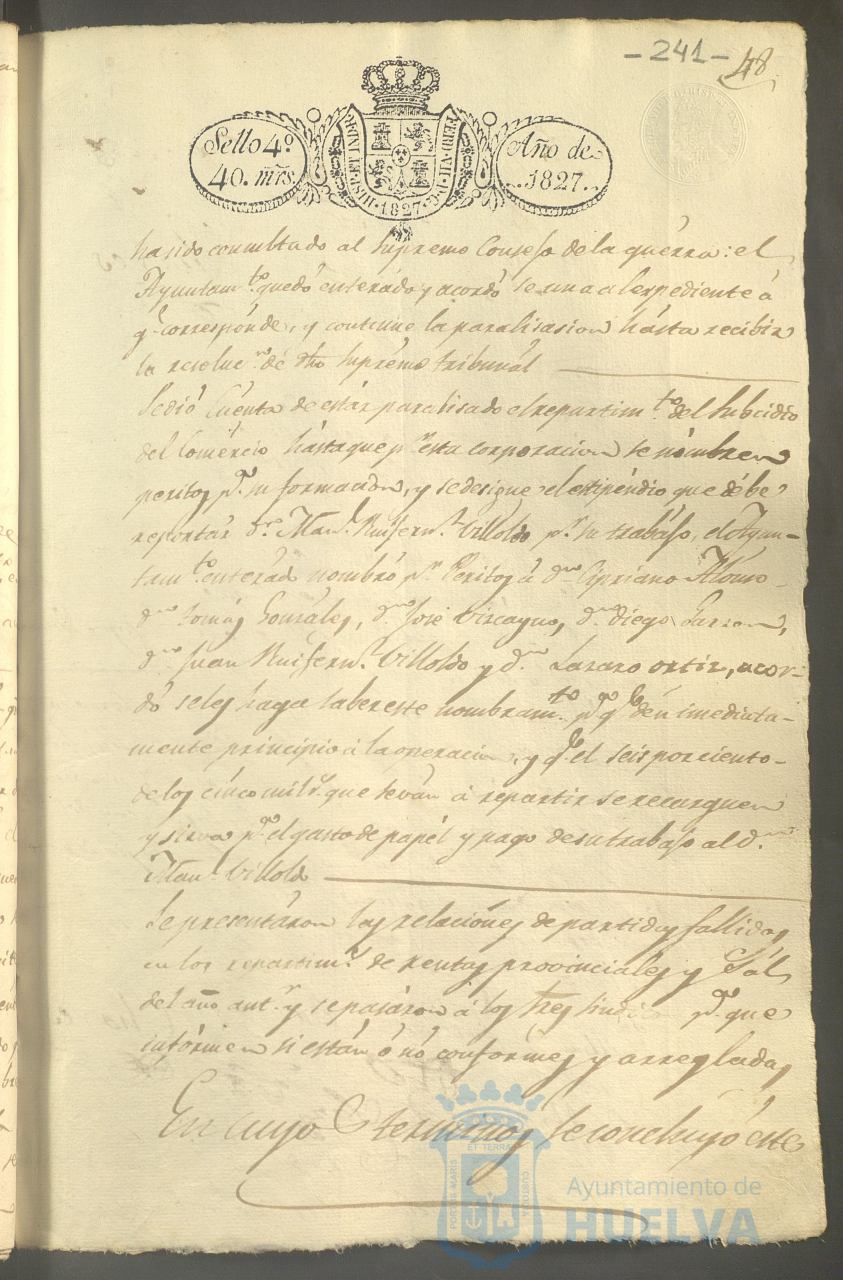 -241- 48
Sello 4º
40. mrs.
HISP. ET IND. R.
FERD. VII. D. G.
1827
Año de
1827.
ha sido consultado al supremo Consejo de la guerra: el
Ayuntamto. quedó enterado y acordó se una al espediente á
q. corresponde, y continue la paralisasion hásta recibir
la resolucn. de dho supremo tribunal
Se dió Cuenta de estár paralisado el repartimto. del Subcidio
del Comércio hásta que pr. esta corporacion se nómbren
peritos pa. su formacion, y se desigue el estipéndio que débe
reportár Dn. Manl. Ruifernz. Villoldo pr. su trabajo, el Ayun-
tamto. enterado nombró pr. Peritos á dn. Cipriano Alonso
dn. tomás Gonzáles, dn. José Viscayno, dn. diego Garzon,
dn. Juan Ruifernz. Villoldo y dn. Lazaro ortiz, acor-
dó se les haga saber este nombramto. pa. qe. dén imediata-
mente principio á la operacion, y qe. el seis por ciento
de los cinco mil rs. que se ván á repartir se recarguen
y sirva pa. el gasto de papél y pago de su trabajo al dn.
Manl. Villoldo
Se presentáron las relaciónes de partidas fallidas
en los repartimts. de rentas provinciáles y Sál
del año antr. y se pasáron á los tres sindicos pa. que
infórmen si están ó nó conformes y arregladas
En cuyos terminos se concluyó éste
PORTUS MARIS ET TERRAE CUSTODIA
Ayuntamiento de
HUELVA